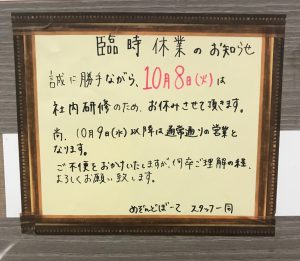 臨時休業のお知らせ
誠に勝手ながら、10月8日(火)は
社内研修のため、お休みさせて頂きます。
尚、10月9日(水)以降は通常通りの営業と
なります。
ご不便をおかけいたしますが、何卒ご理解の程、
よろしくお願い致します。
めぎんどぼーて スタッフ一同